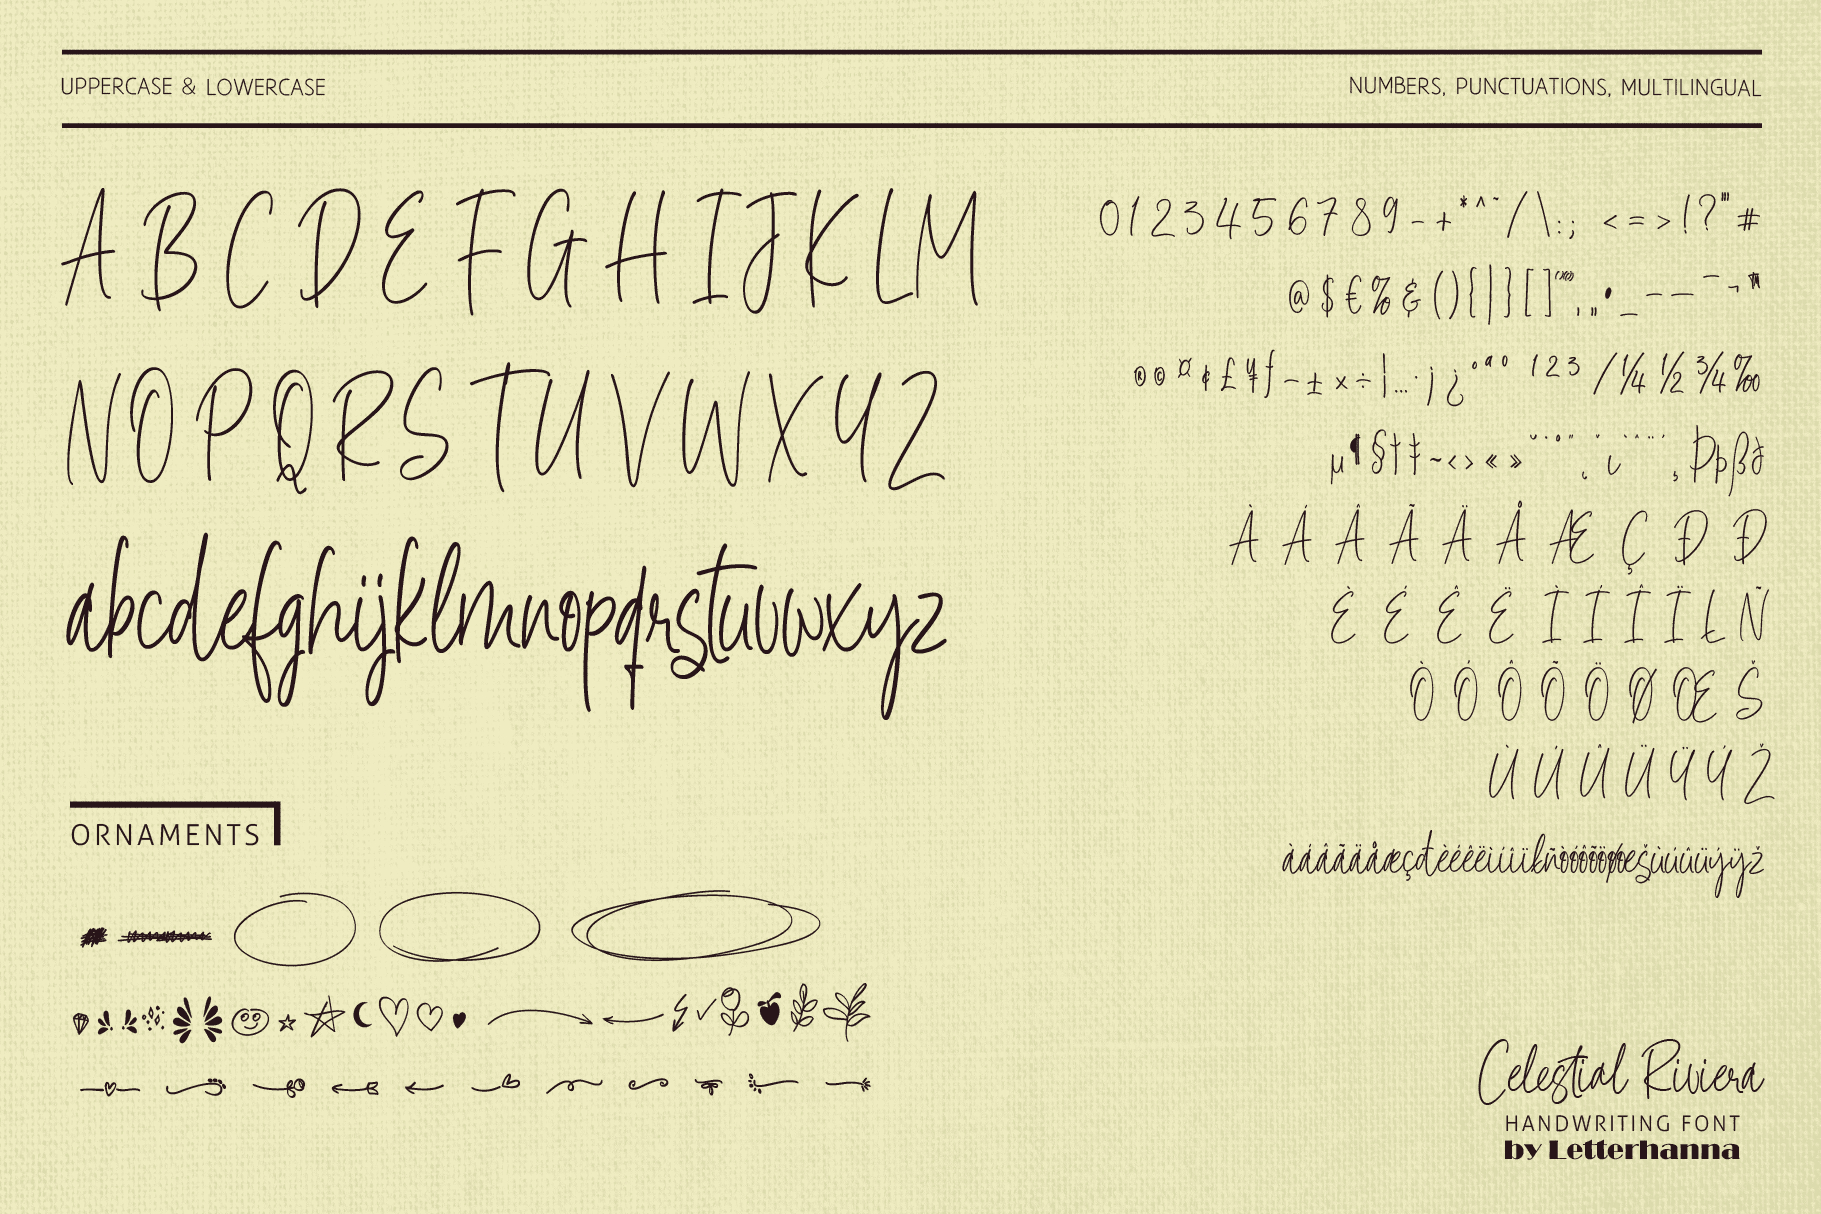 UPPERCASE & LOWERCASE
NUMBERS, PUNCTUATIONS, MULTILINGUAL
ABCDEFGHIJKLM
NOPQRSTUVWXYZ
abcdefghijklmnopqrstuvwxyz
0123456789-+*^~/\:; <=>!?"#
@$€%&(){|}[]
®©¤¢£¥ƒ−±×÷|…·¡¿ºªº 123 /¼½¾‰
µ¶§†‡~‹›«» Þþß
ÀÁÂÃÄÅÆÇĐÐ
ÈÉÊËÌÍÎÏŁÑ
ÒÓÔÕÖØŒŠ
ÙÚÛÜŸÝŽ
àáâãäåæçđèéêëìíîïłñòóôõöøœšùúûüýÿž
ORNAMENTS
Celestial Riviera
HANDWRITING FONT
by Letterhanna